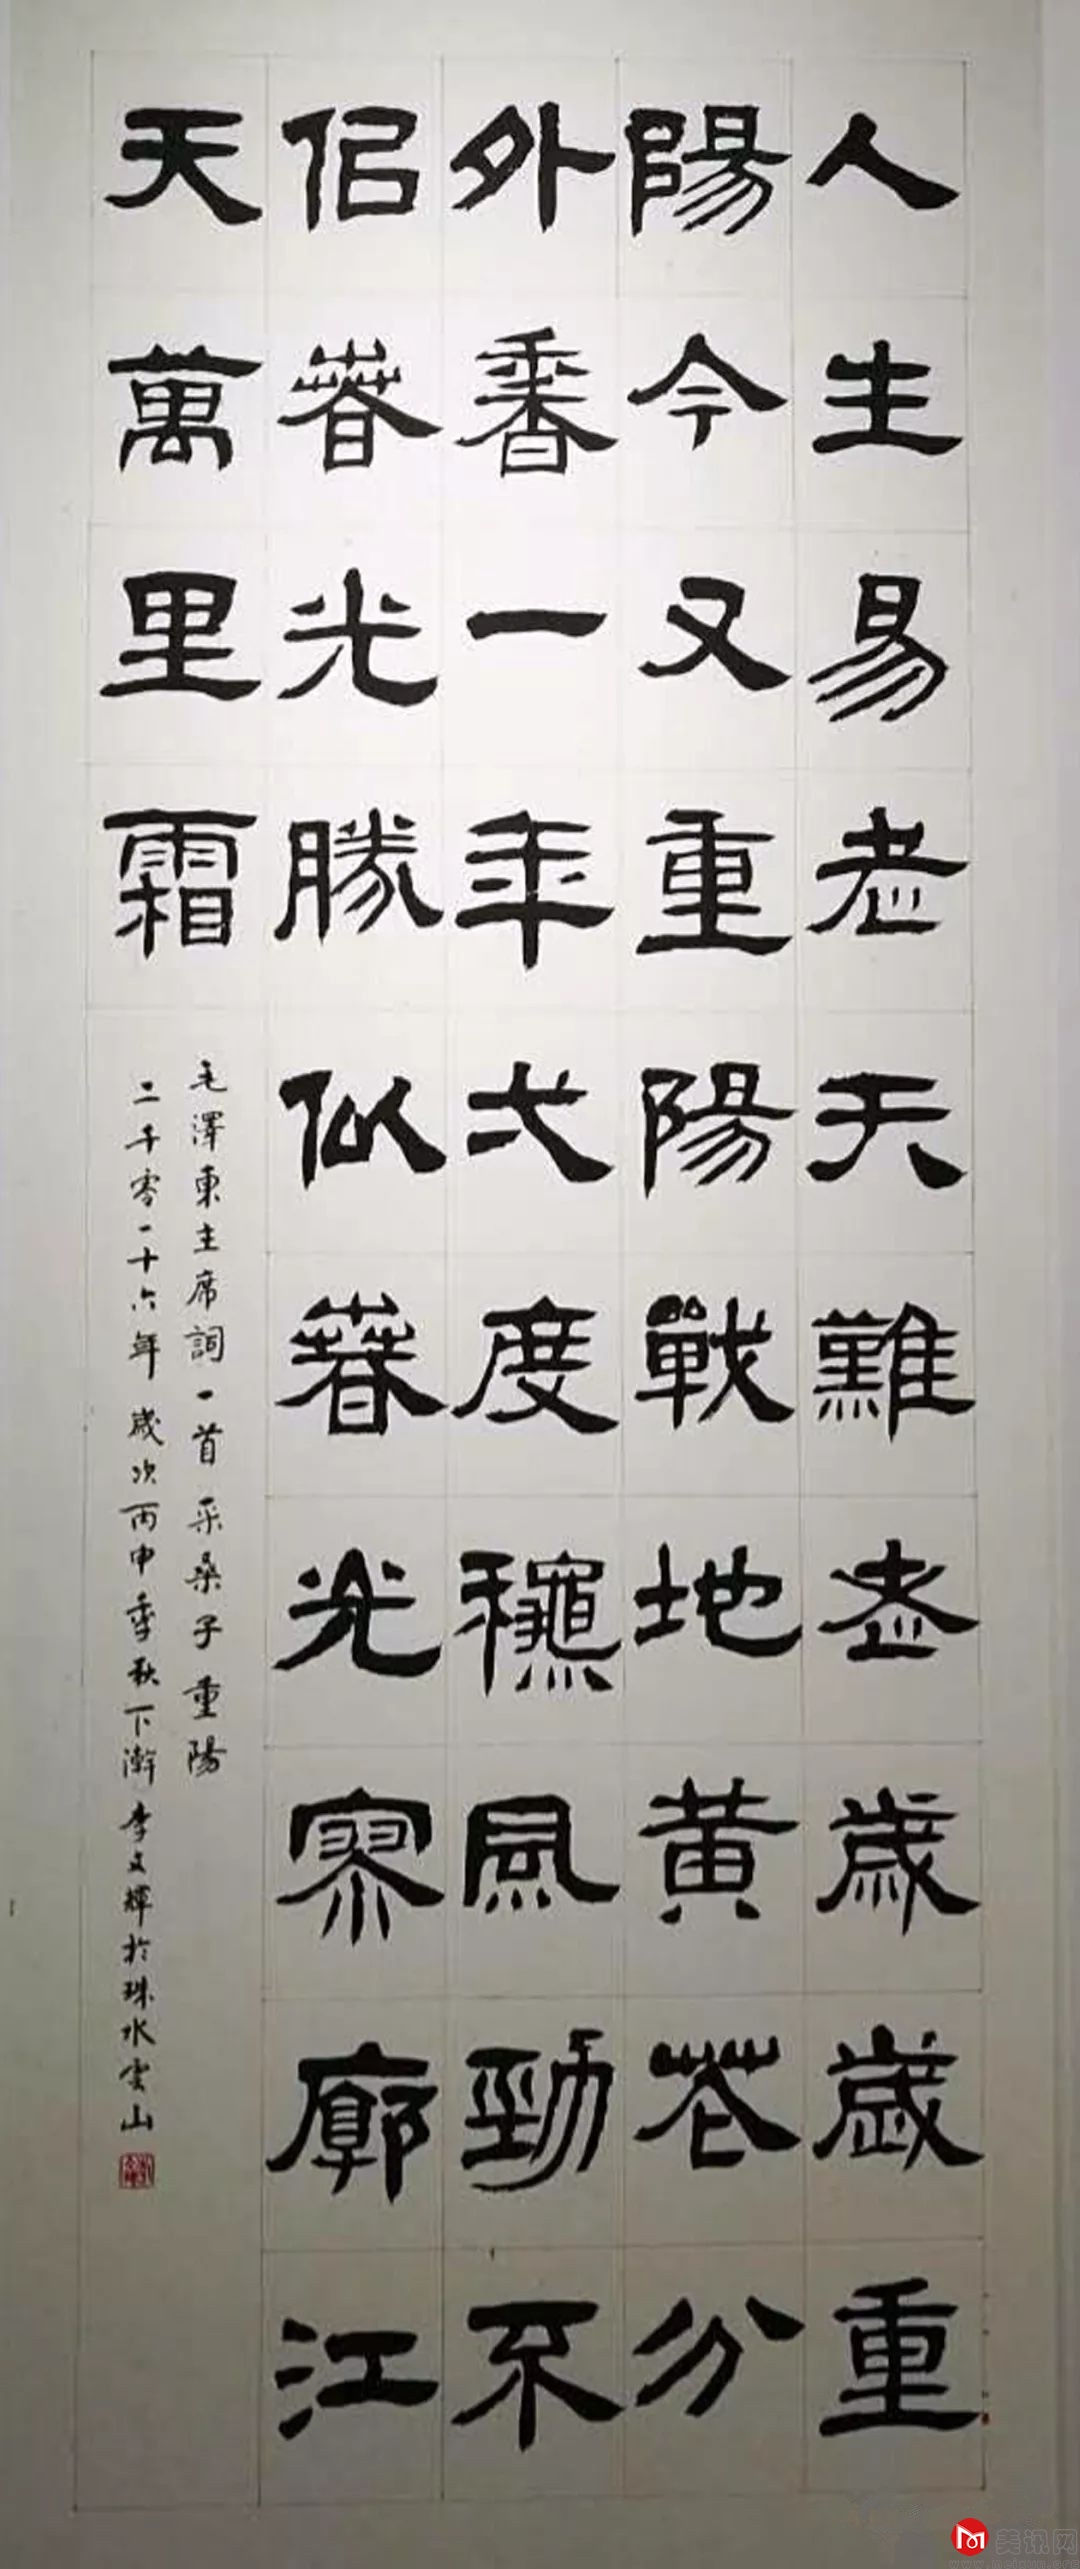 人生易老天難老歲歲重
陽今又重陽戰地黃花分
外香一年弌度龝風勁不
佀春光勝似春光寥廓江
天萬里霜
毛澤東主席詞一首 采桑子重陽
二千零一十六年歲次丙申季秋下澣李文輝於珠水雲山
美讯网